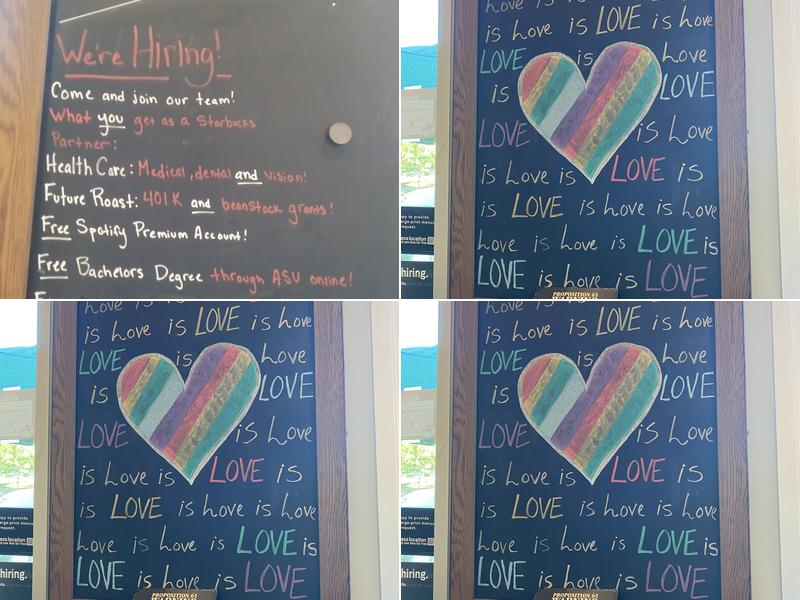 We're Hiring!
Come and join our team!
What you get as a Starbucks
Partner:
Health Care: Medical, dental and vision!
Future Roast: 401K and beanstock grants!
Free Spotify Premium Account!
Free Bachelors Degree through ASU online!
is Love is LOVE is Love
LOVE is Love
is LOVE
LOVE is Love
is Love is LOVE is
is LOVE is love is Love
Love is Love is LOVE is
LOVE is love is LOVE
hiring.
PROPOSITION 65
is Love is LOVE is Love
LOVE is Love
is LOVE
LOVE is Love
is Love is LOVE is
is LOVE is love is Love
Love is Love is LOVE is
LOVE is love is LOVE
hiring.
PROPOSITION 65
WARNING
is Love is LOVE is Love
LOVE is Love
is LOVE
LOVE is Love
is Love is LOVE is
is LOVE is love is Love
Love is Love is LOVE is
LOVE is love is LOVE
hiring.
PROPOSITION 65
WARNING